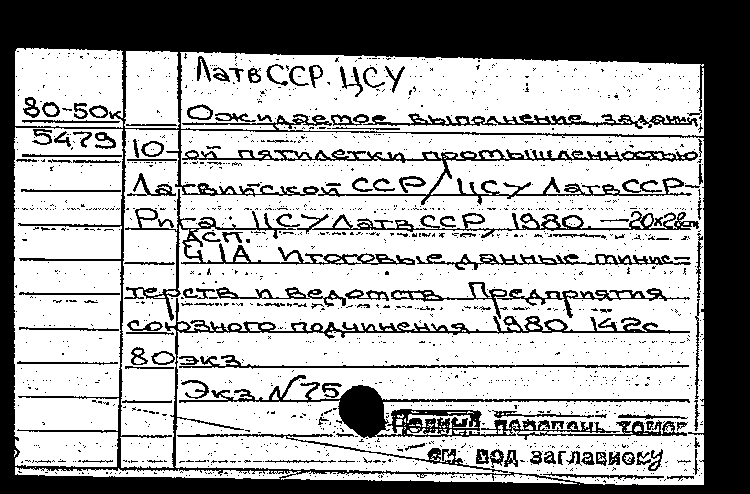 ЛатвССР. ЦСУ
80-50к Ожидаемое выполнение заданий
5479 10-ой пятилетки промышленностью
Латвийской ССР/ЦСУ ЛатвССР.-
Рига: ЦСУ Латв ССР, 1980. -20х28см
ДСП.
Ч. 1А. Итоговые данные минис=
терств и ведомств. Предприятия
союзного подчинения. 1980. 142с.
80 экз.
Экз. № 75
Полный перечень томов
см. под заглавному